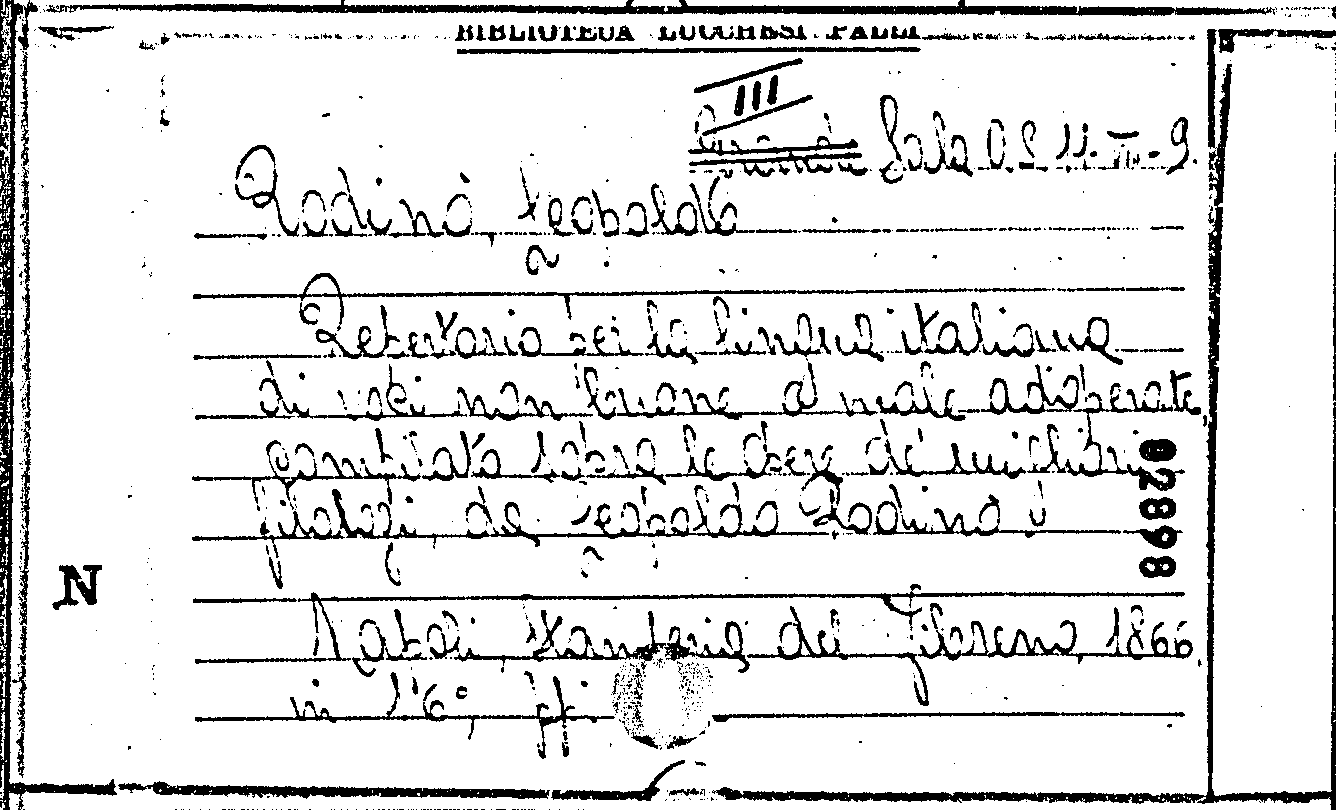 BIBLIOTECA LUCCHESI PALLI
III
Grande Sala O. S 11. III - 9.
Rodinò, Leopoldo
Repertorio per la lingua italiana
di voci non buone o male adoperate
compilato sopra le opere de' migliori
filologi, da Leopoldo Rodinò.
02898
N
Napoli, Stamperia del Fibreno, 1866
in 16°, pp.